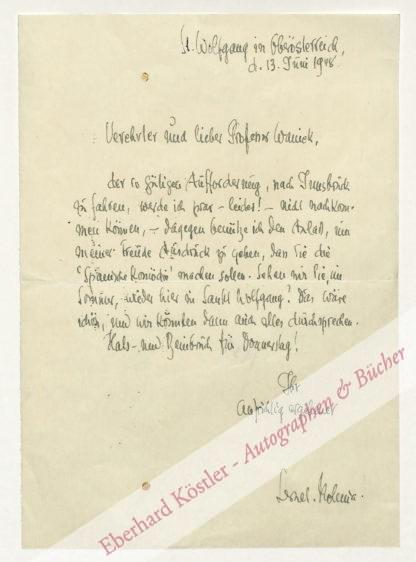 St. Wolfgang in Oberösterreich,
d. 13. Juni 1948
Verehrter und lieber Professor Waniek,
der so gütigen Aufforderung, nach Innsbruck
zu fahren, werde ich zwar – leider! – nicht nachkom-
men können, – dagegen benütze ich den Anlaß, um
meiner Freude Ausdruck zu geben, daß Sie die
"Spanische Komödie" machen sollen. Sehen wir Sie, im
Sommer, wieder hier in Sankt Wolfgang? Das wäre
schön, und wir könnten dann auch alles durchsprechen.
Hals- und Beinbruch für Donnerstag!
Ihr
aufrichtig ergebener
Lernet-Holenia.
Eberhard Köstler - Autographen & Bücher